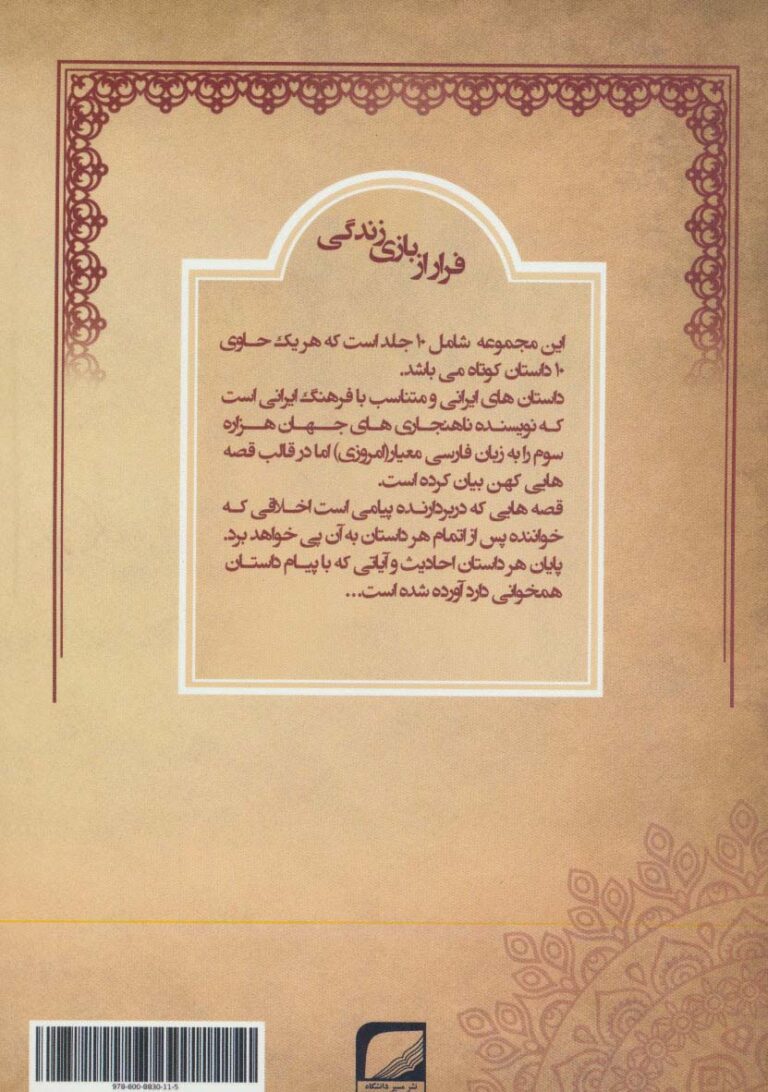 فرار از بازی زندگی
این مجموعه شامل ۱۰ جلد است که هر یک حاوی
۱۰ داستان کوتاه می باشد.
داستان های ایرانی و متناسب با فرهنگ ایرانی است
که نویسنده ناهنجاری های جهان هزاره
سوم را به زبان فارسی معیار(امروزی) اما در قالب قصه
هایی کهن بیان کرده است.
قصه هایی که دربردارنده پیامی است اخلاقی که
خواننده پس از اتمام هر داستان به آن پی خواهد برد.
پایان هر داستان احادیث و آیاتی که با پیام داستان
همخوانی دارد آورده شده است...
978-600-8830-11-5
نشر مسیر دانشگاه